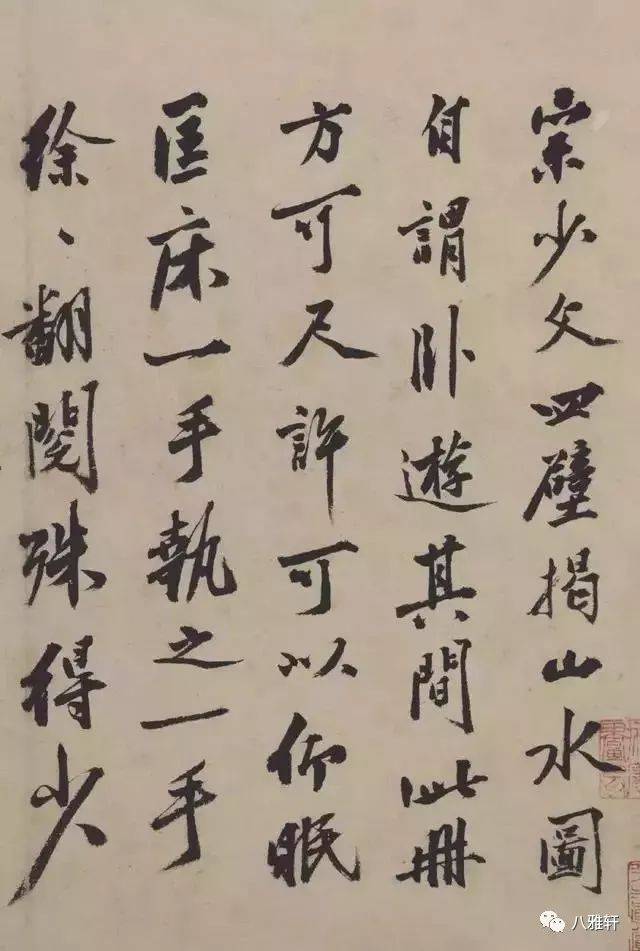 宗少文四壁揭山水圖
自謂卧遊其間此冊
方可尺許可以仰眠
匡床一手執之一手
徐、翻閱殊得少
八雅轩